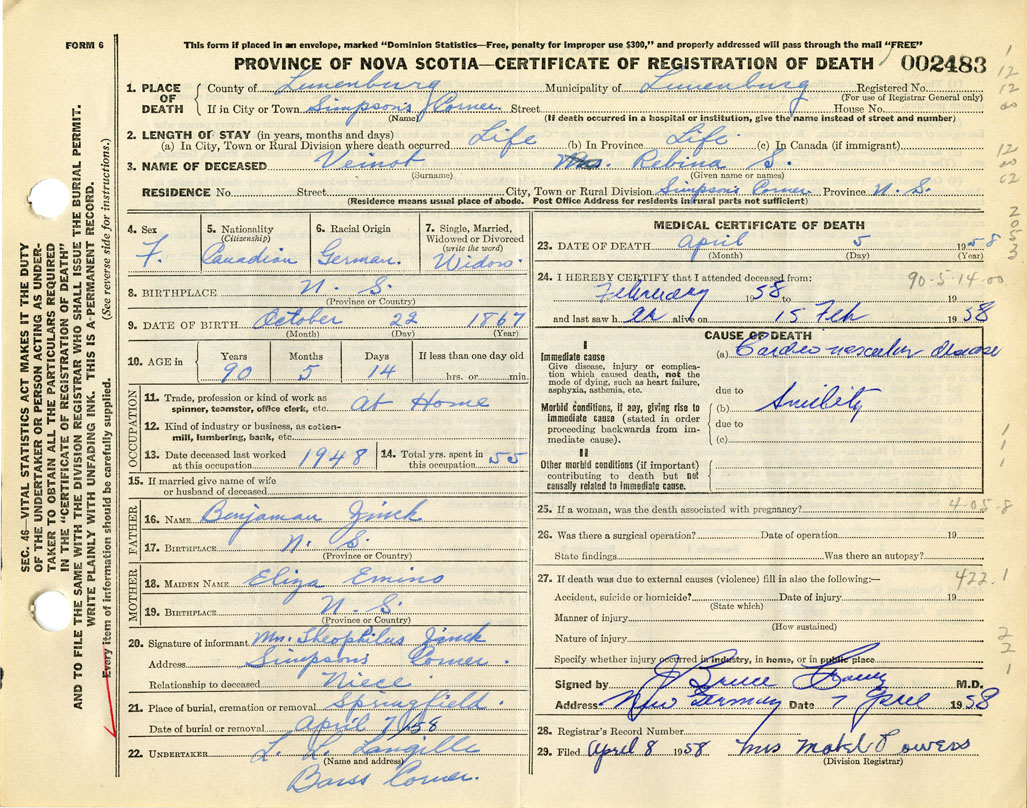 FORM 6
This form if placed in an envelope, marked "Dominion Statistics—Free, penalty for improper use $300," and properly addressed will pass through the mail "FREE"
PROVINCE OF NOVA SCOTIA—CERTIFICATE OF REGISTRATION OF DEATH 002483
1. PLACE OF DEATH
County of Lunenburg Municipality of Lunenburg Registered No.
(For use of Registrar General only)
If in City or Town Simpson's Corner Street House No.
(Name) (If death occurred in a hospital or institution, give the name instead of street and number)
2. LENGTH OF STAY (in years, months and days)
(a) In City, Town or Rural Division where death occurred Life (b) In Province Life. (c) In Canada (if immigrant)
3. NAME OF DECEASED Veinot Mrs. Rebina S.
(Surname) (Given name or names)
RESIDENCE No. Street City, Town or Rural Division Simpson's Corner Province N. S.
(Residence means usual place of abode. Post Office Address for residents in rural parts not sufficient)
4. Sex
F.
5. Nationality
(Citizenship)
Canadian
6. Racial Origin
German.
7. Single, Married, Widowed or Divorced
(write the word)
Widow.
8. BIRTHPLACE N. S.
(Province or Country)
9. DATE OF BIRTH October 22 1867
(Month) (Day) (Year)
10. AGE in
Years Months Days If less than one day old
90 5 14 hrs. or min.
OCCUPATION
11. Trade, profession or kind of work as
spinner, teamster, office clerk, etc. At Home
12. Kind of industry or business, as cotton-
mill, lumbering, bank, etc.
13. Date deceased last worked
at this occupation 1948
14. Total yrs. spent in
this occupation 55
15. If married give name of wife
or husband of deceased
FATHER
16. NAME Benjaman Zinck
17. BIRTHPLACE N. S.
(Province or Country)
MOTHER
18. MAIDEN NAME Eliza Emino
19. BIRTHPLACE N. S.
(Province or Country)
20. Signature of informant Mrs. Theophilus Zinck
Address Simpson's Corner.
Relationship to deceased Niece
21. Place of burial, cremation or removal Springfield.
Date of burial or removal April 7/58
22. UNDERTAKER L. L. Langille
(Name and address)
Barss Corner.
MEDICAL CERTIFICATE OF DEATH
23. DATE OF DEATH April 5 1958
(Month) (Day) (Year)
24. I HEREBY CERTIFY that I attended deceased from: 90-5-14-00
February 1958 to 19
and last saw h er alive on 15 Feb 1958
CAUSE OF DEATH
I
Immediate cause
Give disease, injury or complica-
tion which caused death, not the
mode of dying, such as heart failure,
asphyxia, asthenia, etc.
(a) Cardio vascular disease
due to
Morbid conditions, if any, giving rise to
immediate cause (stated in order
proceeding backwards from im-
mediate cause).
(b) Senility
due to
(c)
II
Other morbid conditions (if important)
contributing to death but not
causally related to immediate cause.
25. If a woman, was the death associated with pregnancy? 4-05-8
26. Was there a surgical operation? Date of operation 19
State findings Was there an autopsy?
27. If death was due to external causes (violence) fill in also the following:— 422.1
Accident, suicide or homicide? Date of injury 19
(State which)
Manner of injury
(How sustained)
Nature of injury
Specify whether injury occurred in industry, in home, or in public place
Signed by J Bruce M.D.
Address New Germany Date 7 April 1958
28. Registrar's Record Number
29. Filed April 8 1958 Mrs Mabel Powers
(Division Registrar)
SEC. 46—VITAL STATISTICS ACT MAKES IT THE DUTY
OF THE UNDERTAKER OR PERSON ACTING AS UNDER-
TAKER TO OBTAIN ALL THE PARTICULARS REQUIRED
IN THE "CERTIFICATE OF REGISTRATION OF DEATH"
AND TO FILE THE SAME WITH THE DIVISION REGISTRAR WHO SHALL ISSUE THE BURIAL PERMIT.
WRITE PLAINLY WITH UNFADING INK. THIS IS A PERMANENT RECORD.
Every item of information should be carefully supplied. (See reverse side for instructions.)
1
12
12
00
12
00
02
2
0
5
3
1
1
1
2
2
1